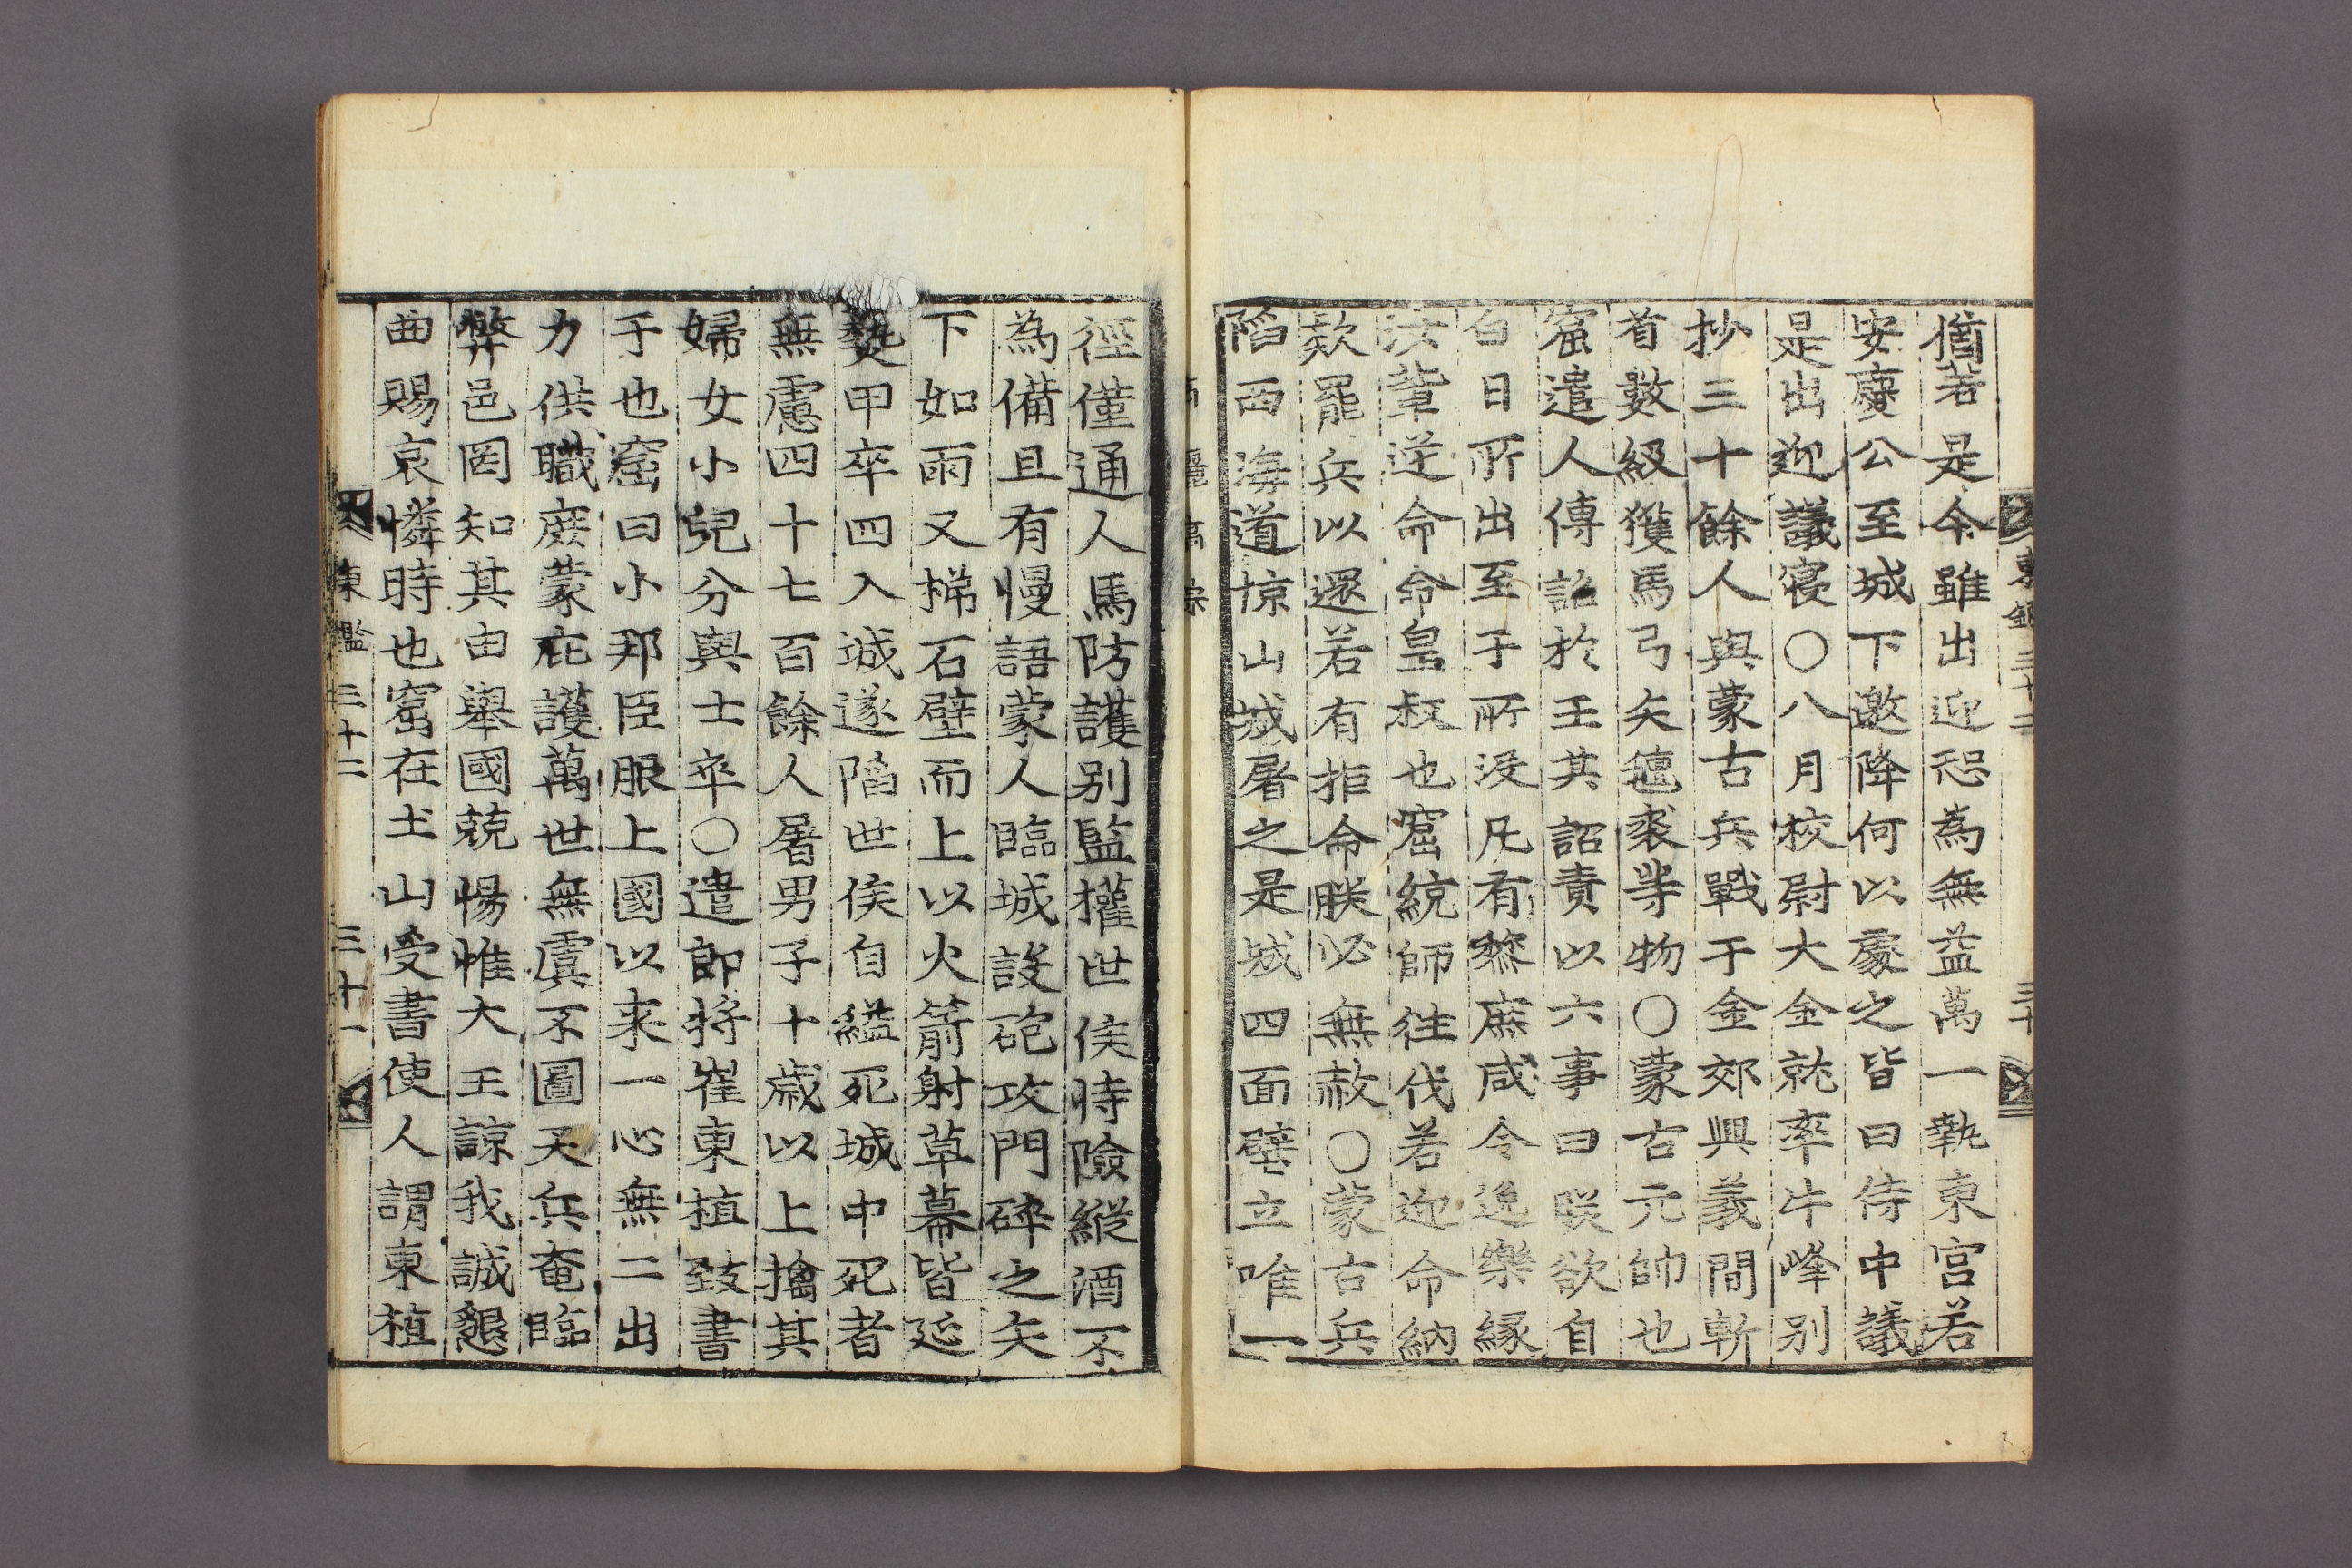 東鑑 三十二 三十
猶若是今雖出迎恐為無益萬一執東宮若
安慶公至城下邀降何以處之皆曰侍中議
是出迎議寢○八月校尉大金就率牛峰別
抄三十餘人與蒙古兵戰于金郊興義間斬
首數級獲馬弓矢氊裘等物○蒙古元帥也
窟遣人傳詔於王其詔責以六事曰朕欲自
日日所出至于所沒凡有黎庶咸令逸樂緣
汝輩逆命命皇叔也窟統師徃伐若迎命納
款罷兵以還若有拒命朕必無赦○蒙古兵
陷西海道椋山城屠之是城四面壁立唯一
高麗高宗
徑僅通人馬防護別監權世侯恃險縱酒不
為備且有慢語蒙人臨城設砲攻門碎之矢
下如雨又梯石壁而上以火箭射草幕皆延
爇甲卒四入城遂陷世侯自縊死城中死者
無慮四十七百餘人屠男子十歲以上擒其
婦女小兒分與士卒○遣郎將崔東植致書
于也窟曰小邦臣服上國以来一心無二出
力供職庶蒙庇護萬世無虞不圖天兵奄臨
弊邑罔知其由舉國兢惕惟大王諒我誠懇
曲賜哀憐時也窟在土山受書使人謂東植
東鑑 三十二 三十一